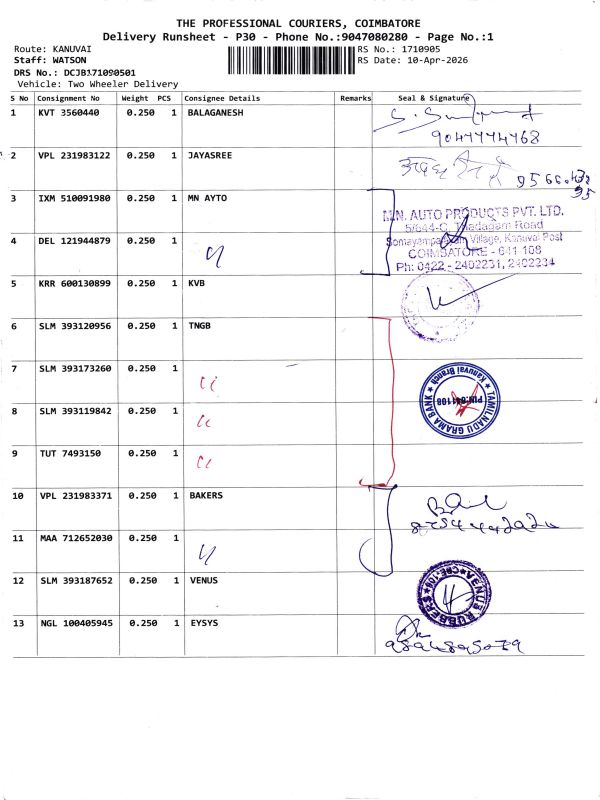 THE PROFESSIONAL COURIERS, COIMBATORE
Delivery Runsheet - P30 - Phone No.:9047080280 - Page No.:1
Route: KANUVAI
RS No.: 1710905
Staff: WATSON
RS Date: 10-Apr-2026
DRS No.: DCJB171090501
Vehicle: Two Wheeler Delivery
S No Consignment No Weight PCS Consignee Details Remarks Seal & Signature
1 KVT 3560440 0.250 1 BALAGANESH
9047774768
2 VPL 231983122 0.250 1 JAYASREE
3 IXM 510091980 0.250 1 MN AYTO
M.N. AUTO PRODUCTS PVT. LTD.
5/644-C, Thadagam Road
Somayampalayam Village, Kanuvai Post
4 DEL 121944879 0.250 1 "
COIMBATORE - 641 108
Ph: 0422 - 2402231, 2402234
5 KRR 600130899 0.250 1 KVB
6 SLM 393120956 0.250 1 TNGB
7 SLM 393173260 0.250 1 "
TAMILNADU GRAMA BANK
Kanuvai Branch
PIN:641108
8 SLM 393119842 0.250 1 "
9 TUT 7493150 0.250 1 "
10 VPL 231983371 0.250 1 BAKERS
11 MAA 712652030 0.250 1 "
12 SLM 393187652 0.250 1 VENUS
VENUS RUBBERS
13 NGL 100405945 0.250 1 EYSYS